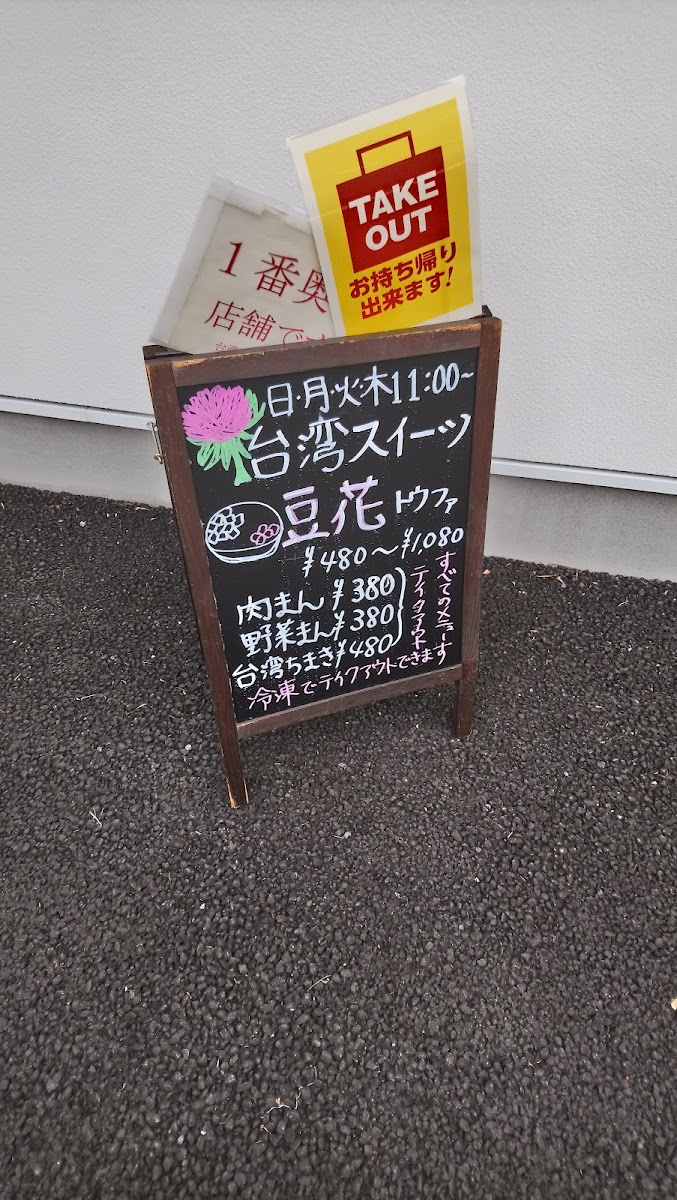 TAKE
OUT
お持ち帰り
出来ます!
1番奥
店舗で
日・月・火・木11:00~
台湾スイーツ
豆花 トウファ
¥480~¥1,080
肉まん ¥380
野菜まん ¥380
台湾ちまき ¥480
冷凍でテイクアウトできます
すべてのメニュー
テイクアウト